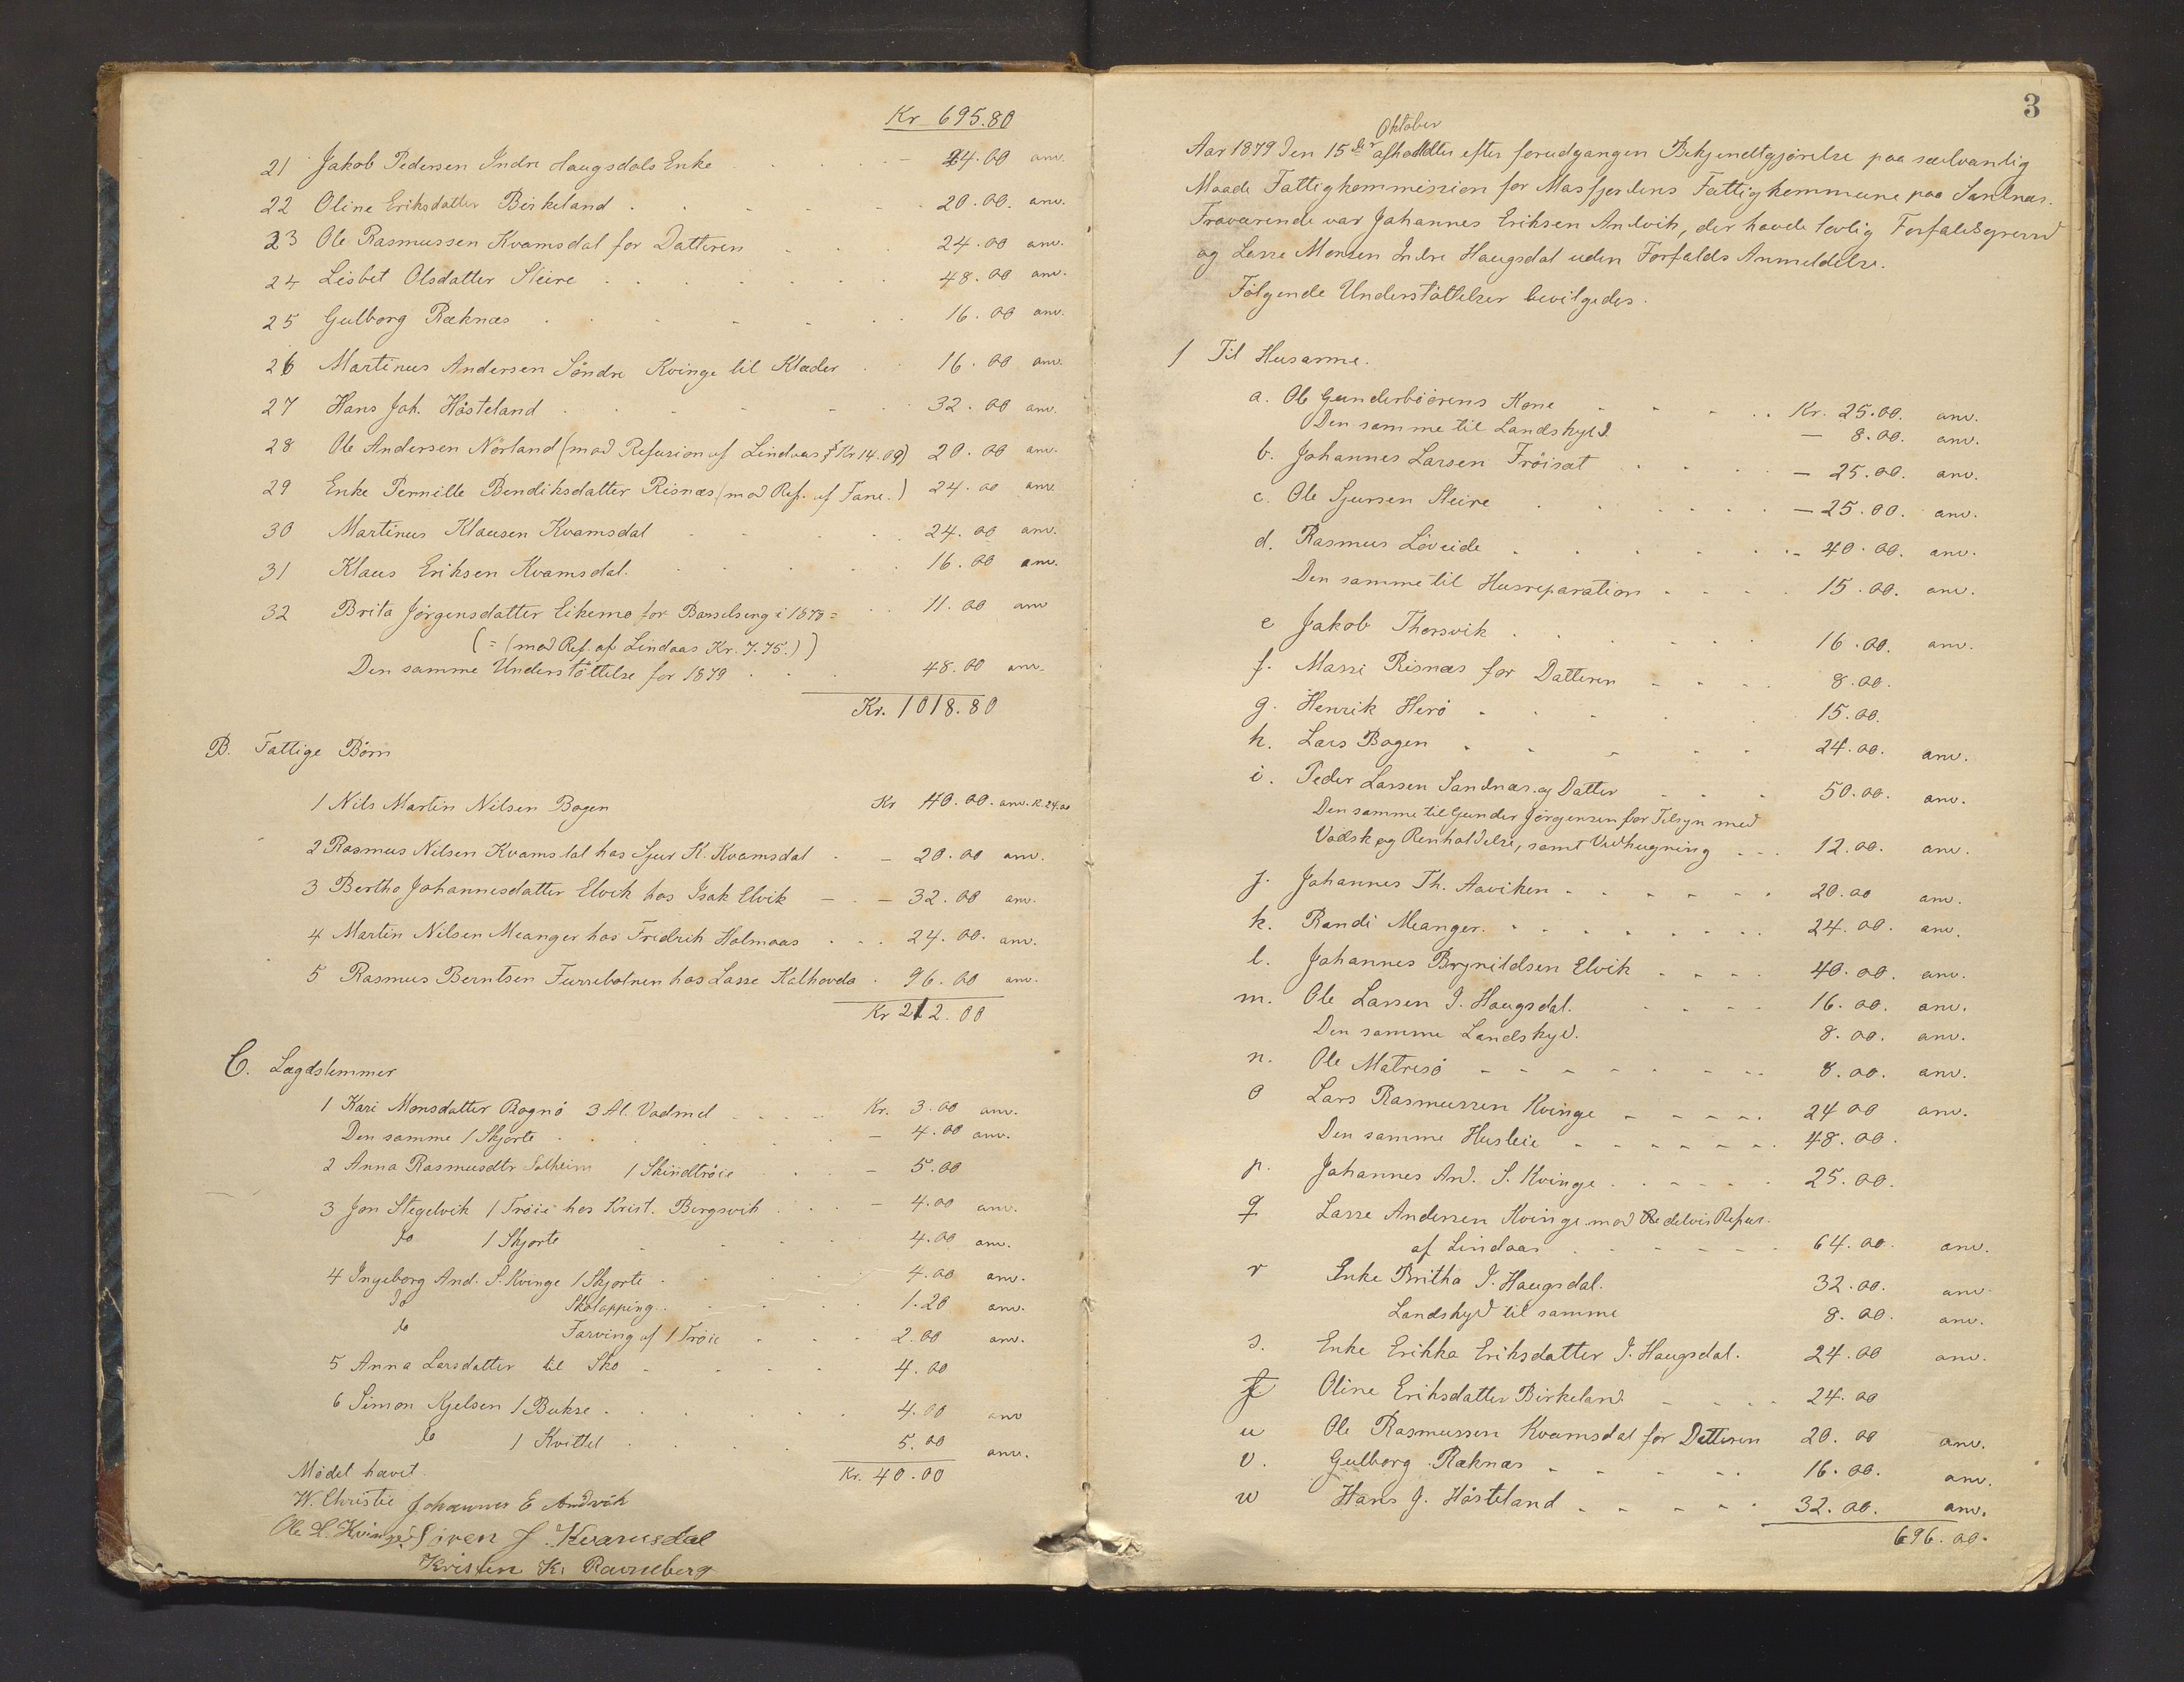 Kr 695.80
21 Jakob Pedersen Indre Haugsdals Enke - 24.00 anv.
22 Oline Eriksdatter Birkeland - 20.00. anv.
23 Ole Rasmussen Kvamsdal for Datteren 24.00 anv.
24 Lisbet Olsdatter Steire 48.00 anv.
25 Gulborg Ræknæs 16.00 anv.
26 Martinus Andersen Söndre Kvinge til Klæder 16.00 anv.
27 Hans Joh. Håsteland 32.00 anv.
28 Ole Andersen Nörland (mod Refusion af Lindaas Kr 14.00) 20.00 anv.
29 Enke Pernille Bendiksdatter Risnæs (mod Ref. af Fane.) 24.00 anv.
30 Martinus Klausen Kvamsdal 24.00 anv.
31 Klaus Eriksen Kvamsdal. 16.00 anv.
32 Brita Jörgensdatter Eikemo for Barselseng i 1878 = 11.00 anv
(= (mod Ref. af Lindaas Kr. 7.75.))
Den samme Understöttelse for 1879 48.00 anv.
Kr. 1018.80
B. Fattige Börn
1 Nils Martin Nilsen Bogen Kr 40.00. anv. K. 24.00
2 Rasmus Nilsen Kvamsdal hos Sjur K. Kvamsdal - 20.00 anv.
3 Bertha Johannesdatter Elvik hos Isak Elvik - 32.00 anv.
4 Martin Nilsen Meanger hos Fredrik Holmaas 24.00. anv.
5 Rasmus Berntsen Furrebotnen hos Lasse Kalhovda 96.00 anv.
Kr 212.00
C. Lægdslemmer
1 Kari Monsdatter Bognö 3 Al. Vadmel Kr. 3.00 anv.
Den samme 1 Skjorte - 4.00 anv.
2 Anna Rasmusdtr Solheim 1 Skindtröie - 5.00
3 Jon Stegelvik 1 Tröie hos Krist. Bergsvik - 4.00 anv.
do 1 Skjorte 4.00 anv.
4 Ingeborg And. S. Kvinge 1 Skjorte 4.00 anv.
do Skolapping 1.20 anv.
do Farving af 1 Tröie 2.00 anv.
5 Anna Larsdatter til Sko 4.00
6 Simon Kjelsen 1 Bukse 4.00 anv
do 1 Kvittel 5.00 anv.
Mödet hævet. Kr. 40.00
W. Christie Johannes E Andvik
Ole L. Kvinge. Sören J. Kvamsdal
Kristen K. Ravneberg
3
Oktober
Aar 1879 den 15de afholdtes efter forudgangen Bekjendtgjörelse paa sædvanlig
Maade Fattigkommission for Masfjordens Fattigkommune paa Sandnæs.
Fraværende var Johannes Eriksen Andvik, der havde lovlig Forfaldsgrund
og Lasse Monsen Indre Haugsdal uden Forfalds Anmeldelse.
Fölgende Understöttelser bevilgedes.
1 Til Husarme.
a. Ole Gunderböerens Kone Kr. 25.00. anv.
Den samme til Landskyld - 8.00. anv.
b. Johannes Larsen Fröisæt - 25.00. anv.
c. Ole Sjursen Steire - 25.00. anv.
d. Rasmus Löveide - 40.00. anv.
Den samme til Husreparation 15.00. anv.
e Jakob Thorsvik 16.00. anv.
f. Massi Risnæs for Datteren 8.00.
g. Henrik Herö 15.00.
h. Lars Bogen 24.00. anv.
i. Peder Larsen Sandnæs og Datter 50.00. anv.
Den samme til Gunder Jörgensen for Tilsyn med
Vadsk og Renholdelse, samt Vedhugning 12.00. anv.
j. Johannes Th. Aaviken 20.00 anv.
k. Randi Meanger. 24.00. anv.
l. Johannes Brynildsen Elvik 40.00. anv.
m. Ole Larsen I. Haugsdal. 16.00. anv.
Den samme Landskyld. 8.00. anv.
n. Ole Matresö 8.00. anv.
o Lars Rasmussen Kvinge 24 00 anv.
Den samme Husleie 48.00.
p. Johannes And. S. Kvinge 25.00.
q Lasse Andersen Kvinge mod delvis Refus.
af Lindaas 64.00. anv.
r Enke Britha I. Haugsdal. 32.00. anv.
Landskyld til samme 8.00. anv.
s. Enke Erikka Eriksdatter I. Haugsdal. 24.00 anv.
t Oline Eriksdatter Birkeland 24.00
u Ole Rasmussen Kvamsdal for Datteren 20.00 anv.
v. Gulborg Ræknæs 16.00. anv.
w Hans J. Håsteland 32.00. anv.
696.00.